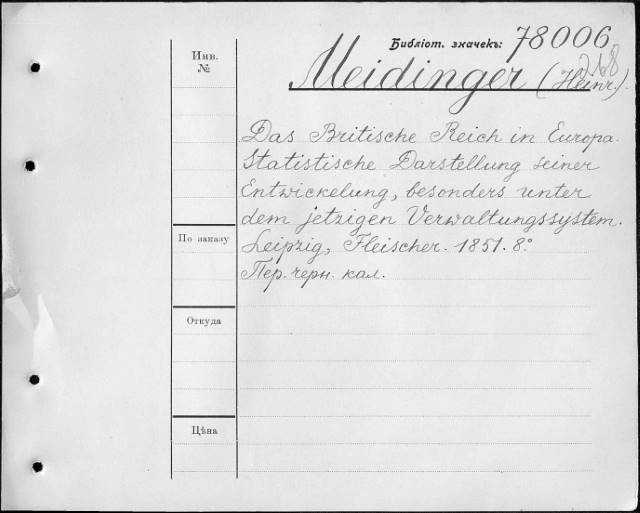 Библіот. значекъ: 78006
268
Meidinger (Heinr.).
Инв.
№
Das Britische Reich in Europa.
Statistische Darstellung seiner
Entwickelung, besonders unter
dem jetzigen Verwaltungssystem.
Leipzig, Fleischer. 1851. 8.°
Пер. черн. кал.
По заказу
Откуда
Цѣна